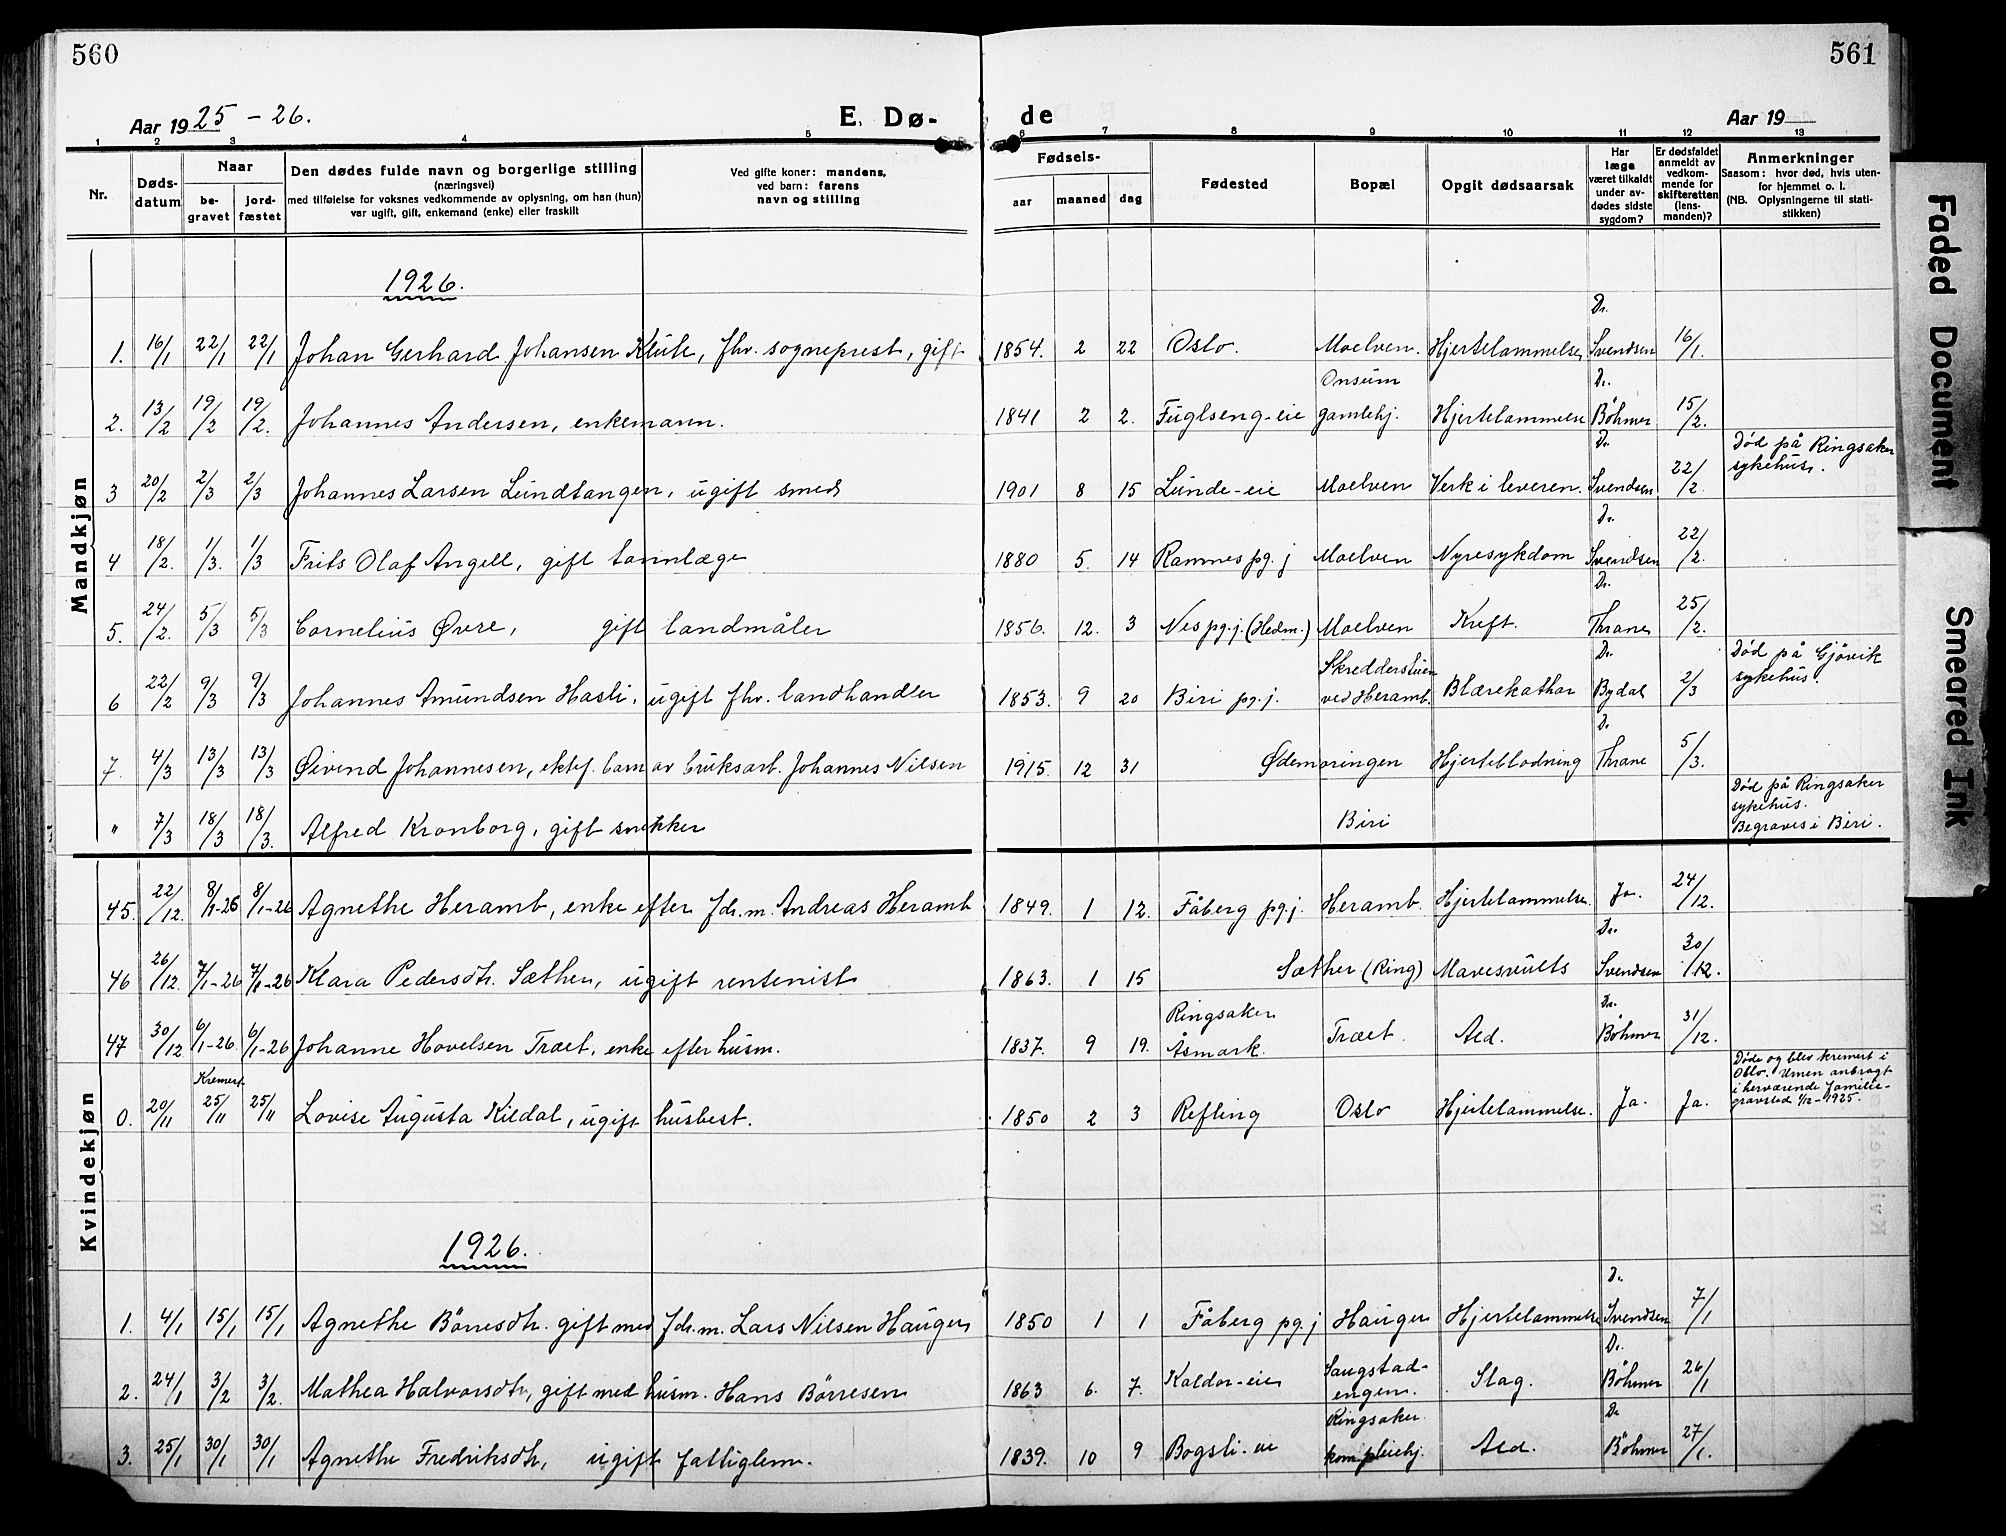 560
561
Aar 1925 - 26.
E. Dø-
de
Aar 19
1 2 3 4 5 6 7 8 9 10 11 12 13
Nr.
Døds-
datum
Naar
be-
gravet
jord-
fæstet
Den dødes fulde navn og borgerlige stilling
(næringsvei)
med tilføielse for voksnes vedkommende av oplysning, om han (hun)
var ugift, gift, enkemand (enke) eller fraskilt
Ved gifte koner: mandens,
ved barn: farens
navn og stilling
Fødsels-
aar
maaned
dag
Fødested
Bopæl
Opgit dødsaarsak
Har
læge
været tilkaldt
under av-
dødes sidste
sygdom?
Er dødsfaldet
anmeldt av
vedkom-
mende for
skifteretten
(lens-
manden)?
Anmerkninger
Saasom: hvor død, hvis uten-
for hjemmet o. l.
(NB. Oplysningerne til stati-
stikken)
Mandkjøn
1926.
1. 16/1 22/1 22/1 Johan Gerhard Johansen Klüle, fhv. sogneprest, gift 1854. 2 22 Oslo. Moelven. Hjertelammelse Dr. Svendsen 16/1.
2. 13/2 19/2 19/2. Johannes Andersen, enkemann. 1841 2 2. Fuglseng-eie Onsum gamlehj. Hjertelammelse Dr. Böhmer 15/2.
3 20/2 2/3 2/3 Johannes Larsen Lundtangen, ugift smed 1901 8 15 Lunde-eie Moelven Verk i leveren. Dr. Svendsen 22/2. Död på Ringsaker sykehus.
4 18/2. 1/3. 1/3 Frits Olaf Angell, gift tannlæge 1880 5. 14 Ramnes pg. j Moelven Nyresykdom Dr. Svendsen 22/2.
5. 24/2. 5/3 5/3 Cornelius Øvre, gift landmåler 1856. 12. 3 Nes pg.j. (Hedm.) Moelven Kreft. Dr. Thrane 25/2.
6 22/2 9/3 9/3 Johannes Amundsen Hasli, ugift fhv. landhandler 1853. 9 20 Biri pg.j. Skredderstuen ved Heramb. Blærekathar Dr. Bydal 2/3 Död på Gjövik sykehus.
7. 4/3 13/3 13/3 Øivend Johannesen, ektef. barn av bruksarb. Johannes Nilsen 1915. 12 31 Ødemoringen Hjerteblodning Dr. Thrane 5/3.
" 7/3 18/3 18/3. Alfred Kronborg, gift snekker Biri Död på Ringsaker sykehus. Begraves i Biri.
Kvindekjøn
45. 22/12. 8/1-26 8/1-26 Agnethe Heramb, enke efter fdr.m. Andreas Heramb 1849. 1 12. Fåberg pg.j. Heramb. Hjertelammelse. Ja. 24/12.
46 26/12. 7/1-26 7/1-26 Klara Pedersdtr. Sæther, ugift rentenist 1863. 1 15 Sæther (Ring) Mavesvulst Dr. Svendsen 30/12.
47 30/12 6/1-26. 6/1-26 Johanne Hovelsen Træet, enke efter husm. 1837. 9 19. Ringsaker Åsmark. Træet. Ald. Dr. Böhmer 31/12.
0. 20/11 Kremert 25/11 25/11 Lovise Augusta Kildal, ugift husbest. 1850 2 3 Refling Oslo Hjertelammelse. Ja. Ja. Döde og blev kremert i Oslo. Urnen anbragt i herværende familie-gravsted 4/12-1925.
1926.
1. 4/1 15/1 15/1 Agnethe Börresdtr. gift med fdr.m. Lars Nilsen Hauger 1850 1 1 Fåberg pg.j Hauger Hjertelammelse Dr. Svendsen 7/1
2. 24/1 3/2 3/2. Mathea Halvorsdtr, gift med husm. Hans Børresen 1863 6. 7. Kaldor-eie Saugstad-engen. Slag. Dr. Böhmer 26/1
3. 25/1 30/1 30/1 Agnethe Fredriksdtr, ugift fattiglem. 1839. 10 9 Bogsli-eie Ringsaker kom.pleiehj. Ald. Dr Böhmer 27/1.
Faded Document
Smeared Ink